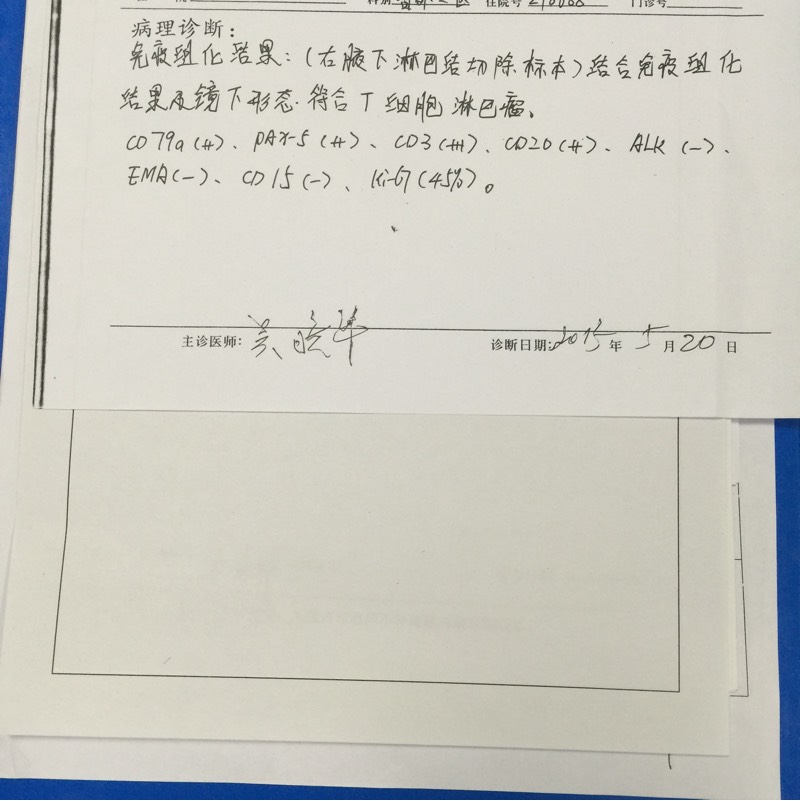 住院号 门诊号
病理诊断:
免疫组化结果:(右腋下淋巴结切除标本)结合免疫组化
结果及镜下形态.符合T细胞淋巴瘤、
CD79a(++)、PAX-5(++)、CD3(+++)、CD20(++)、ALK(-)、
EMA(-)、CD15(-)、Ki-67(45%)。
主诊医师:吴晓华 诊断日期:2015年5月20日